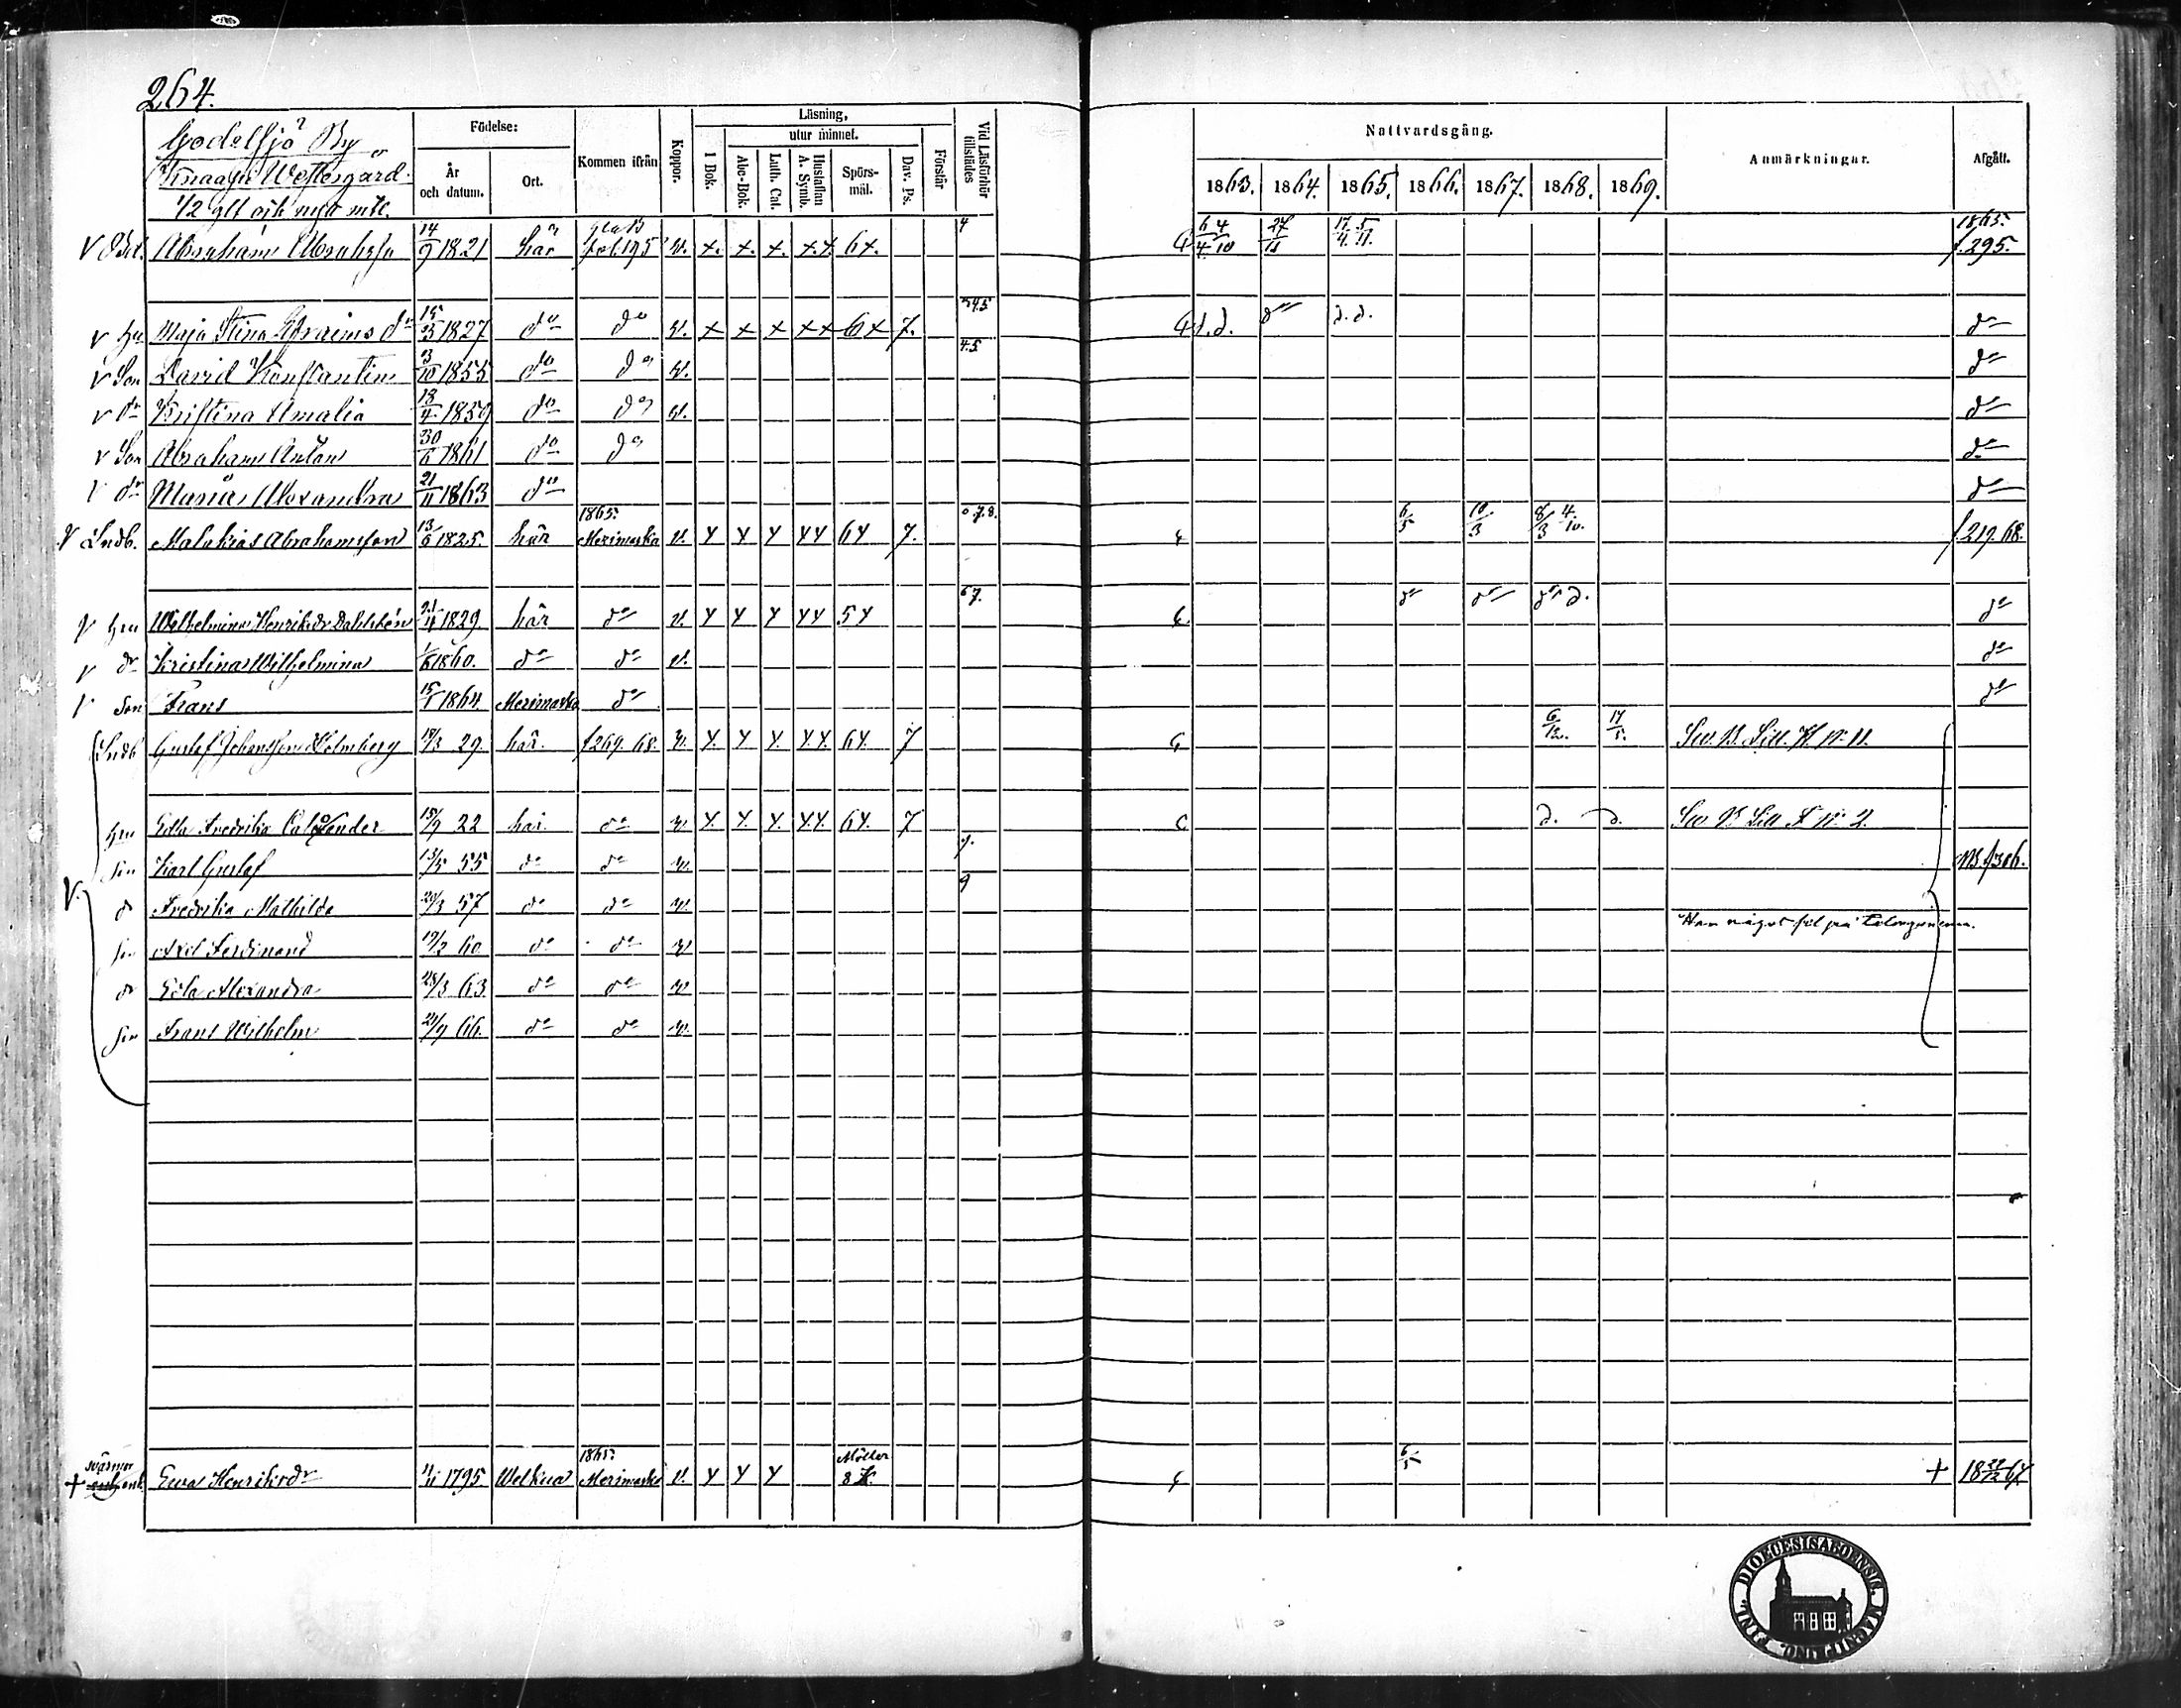 264.
Godelsjö By
Westergård.
1/2 glt och nytt mtl.
Födelse:
År och datum.
Ort.
Kommen ifrån
Koppor.
Läsning,
utur minnet.
I Bok.
Abc-Bok.
Luth. Cat.
Hustaflan A. Symb.
Spörsmål.
Dav. Ps.
Förstår
Vid Läsförhör tillstädes
Nattvardsgång.
1863. 1864. 1865. 1866. 1867. 1868. 1869.
Anmärkningar.
Afgått.
V Abraham Abrahsn 14/9 1821 här Gla B fol. 195 v. x. x. x. x.x. 6x. 4 6/4 4/10 27/11 1865. f. 295.
v hu Maja Stina Efraims dr 15/3 1827 do do v. x x x xx 6x 7. 345 d.d. do d.d. do
v Son David Konstantin 3/10 1855 do do v. 4.5. do
v dr Kristina Amalia 18/4 1859 do do v. do
v Son Abraham Anton 30/6 1861 do do do
V dr Maria Alexandra 21/11 1863 do do
V Lndb. Malakias Abrahamsson 13/6 1825. här 1865. Merimaska v. Y Y Y YY 6Y 7. 6/5 10/3 8/3 4/10. f. 219. 68.
V hu Wilhelmina Henriksdr Dahlstén 1829 här do v. Y Y Y YY 5Y 67. do do do d. do
v dr Kristina Wilhelmina 1/6 1860. do do v. do
V son Frans 15/1 1864. Merimaska do do
Lndb Gustaf Johansson Holmberg 18/3 29. här. f 269. 68. v. Y. Y Y. Y.Y. 6Y. 7 6/12. 17/5. Sw. B. Litt. H. No 11.
hu Edla Fredrika 15/9 22 här. do v. Y. Y. Y. Y.Y. 6Y. 7 d. d. Sw B Litt F No 2.
son Karl Gustaf 13/5 55 do do v. 9. NB. f 306.
V. d Fredrika Mathilda 20/3 57 do do v. 9
Har något fel på
son Axel Ferdinand 19/2 60. do do v
dr Edla Alexandra 28/3 63 do do v
son Frans Wilhelm 21/9 66. do do v.
+ svärmor enk. Ewa Henriksdr 1/11 1795. Welkua 1865. Merimaska v. Y Y Y 8 6/5 + 18 28/12 67.
FINL. DIOECESIS ABOENSIS. MAGNI DUC.